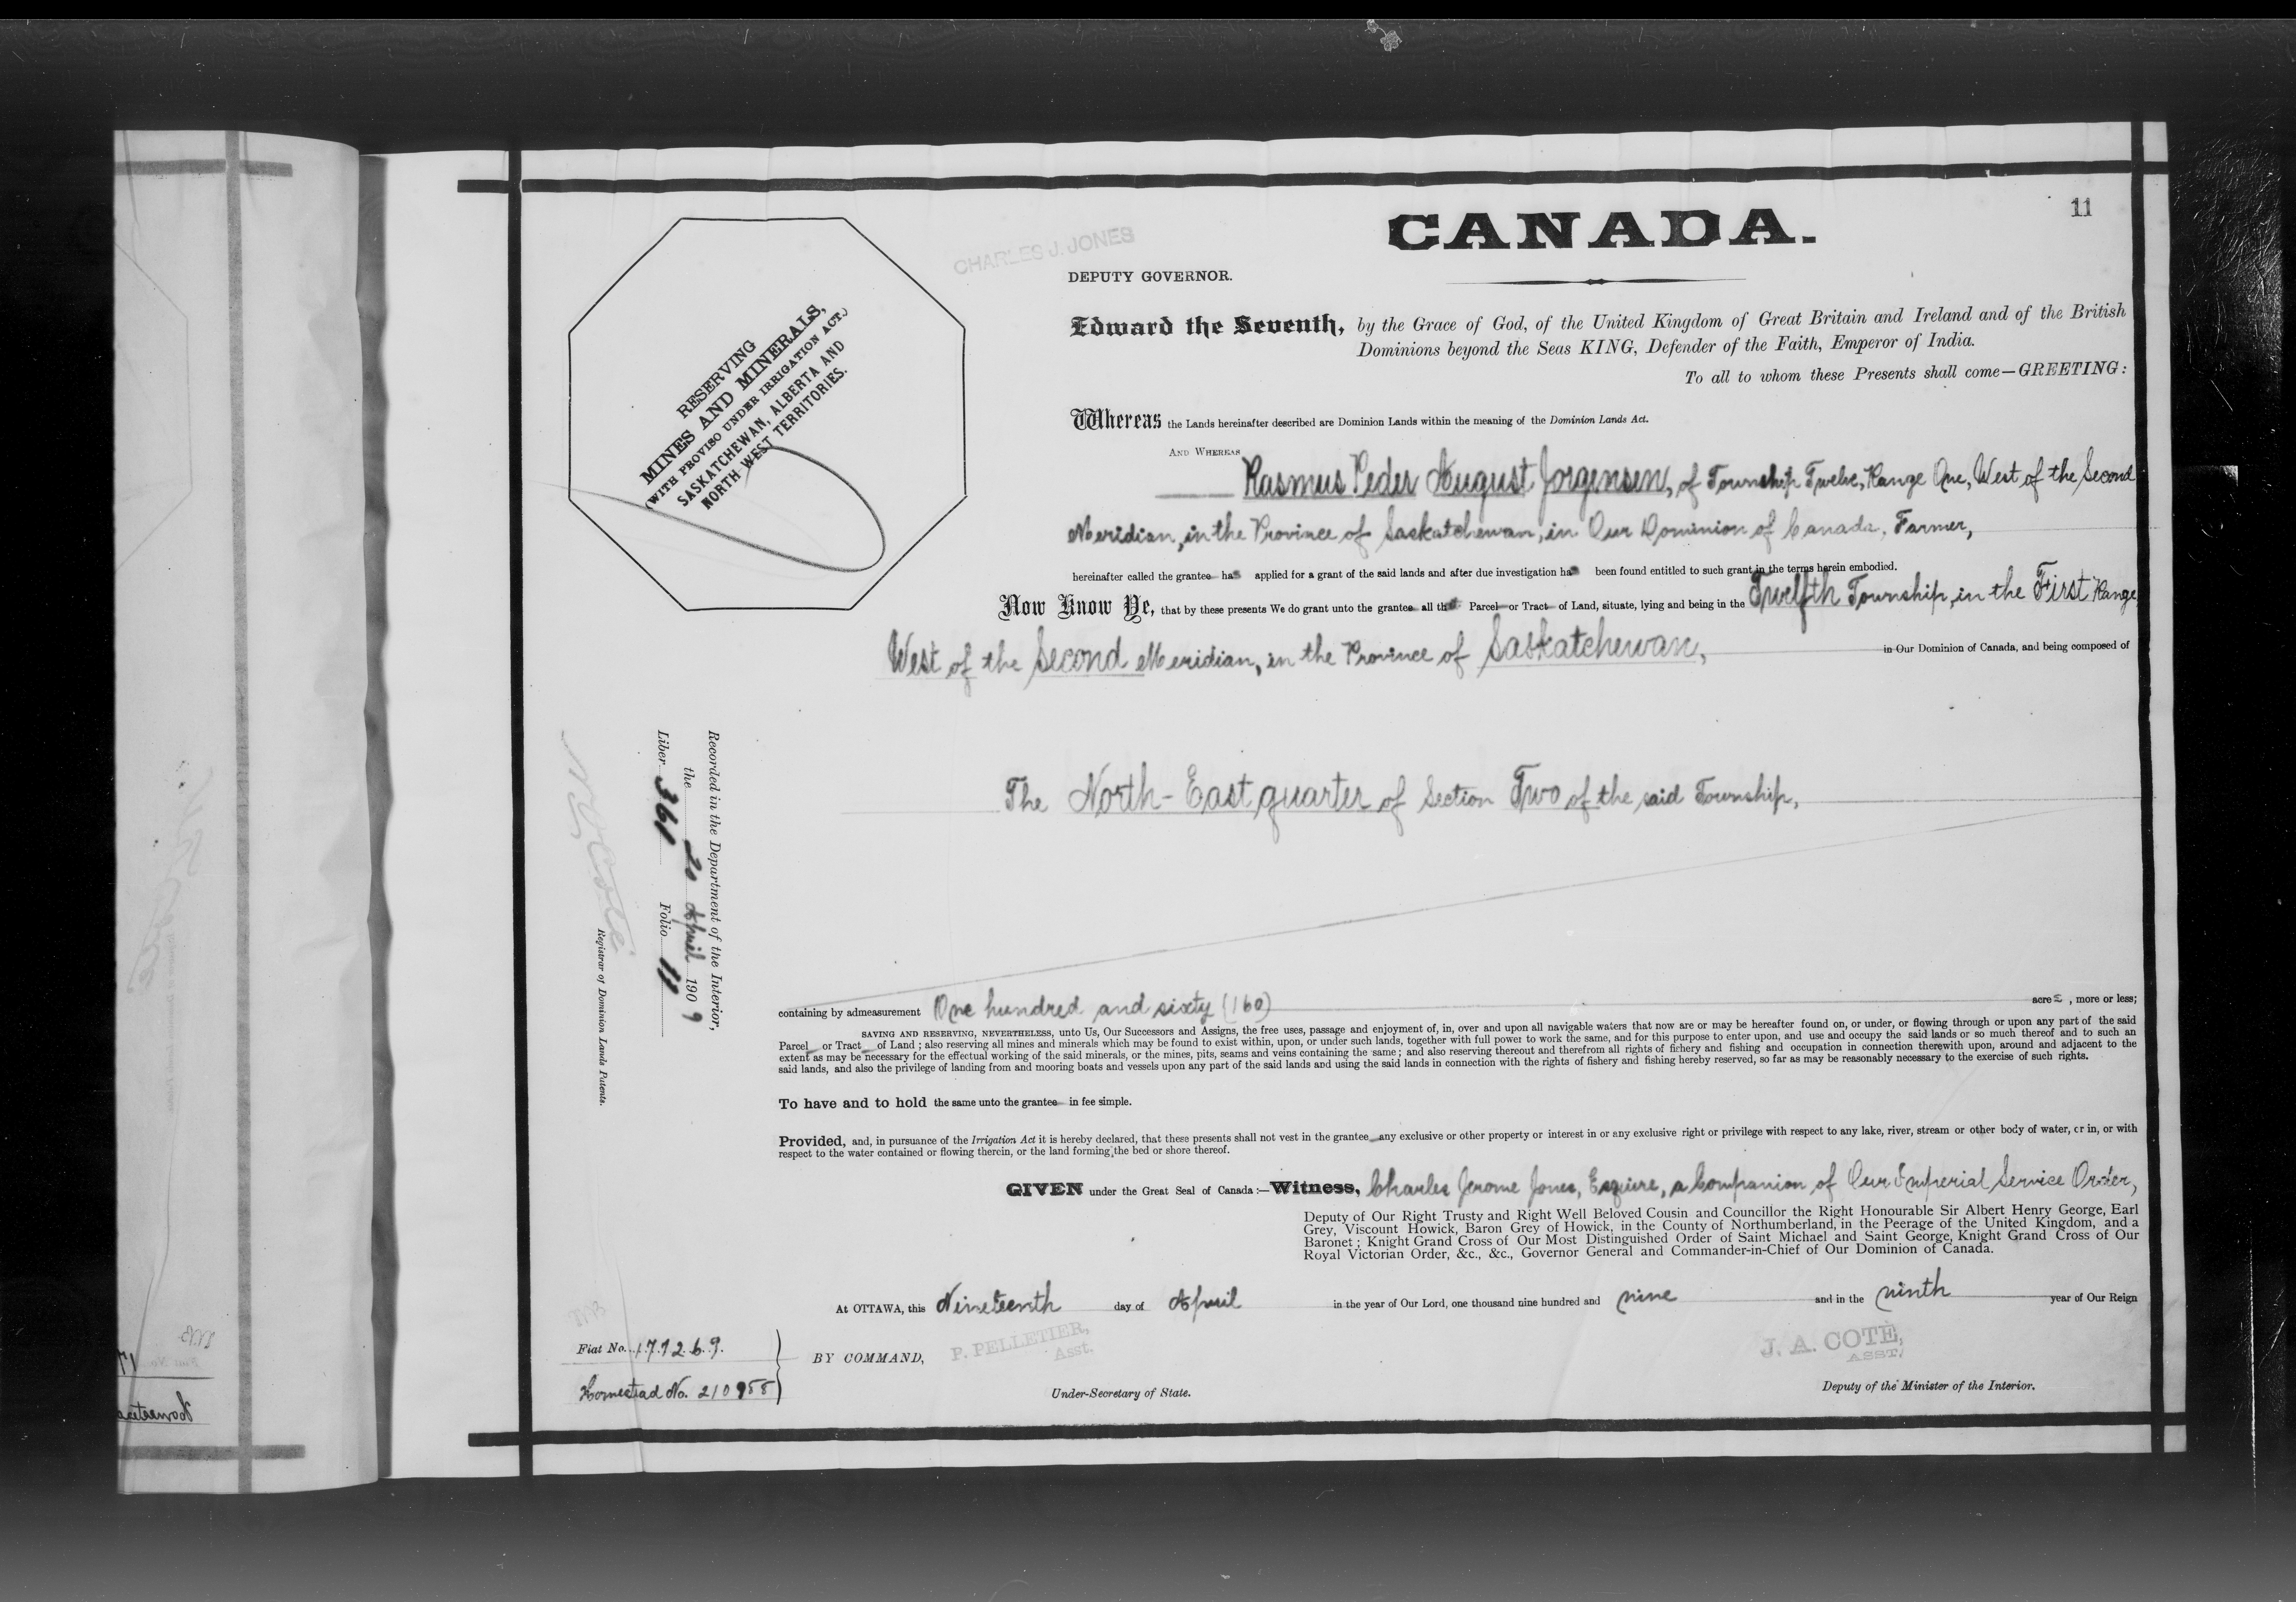 11
CANADA.
CHARLES J. JONES
DEPUTY GOVERNOR.
RESERVING
MINES AND MINERALS,
(WITH PROVISO UNDER IRRIGATION ACT.)
SASKATCHEWAN, ALBERTA AND
NORTH WEST TERRITORIES.
Edward the Seventh, by the Grace of God, of the United Kingdom of Great Britain and Ireland and of the British
Dominions beyond the Seas KING, Defender of the Faith, Emperor of India.
To all to whom these Presents shall come—GREETING:
Whereas the Lands hereinafter described are Dominion Lands within the meaning of the Dominion Lands Act.
AND WHEREAS
Rasmus Peder August Jorgensen, of Township Twelve, Range One, West of the Second
Meridian, in the Province of Saskatchewan, in Our Dominion of Canada, Farmer,
hereinafter called the grantee has applied for a grant of the said lands and after due investigation has been found entitled to such grant in the terms herein embodied.
Now Know Ye, that by these presents We do grant unto the grantee all that Parcel or Tract of Land, situate, lying and being in the Twelfth Township, in the First Range
West of the Second Meridian, in the Province of Saskatchewan, in Our Dominion of Canada, and being composed of
The North-East quarter of Section Two of the said Township,
Recorded in the Department of the Interior,
the 20 April 1909
Liber 361 Folio 11
N. O. Coté
Registrar of Dominion Lands Patents.
containing by admeasurement One hundred and sixty (160) acres, more or less;
SAVING AND RESERVING, NEVERTHELESS, unto Us, Our Successors and Assigns, the free uses, passage and enjoyment of, in, over and upon all navigable waters that now are or may be hereafter found on, or under, or flowing through or upon any part of the said
Parcel or Tract of Land; also reserving all mines and minerals which may be found to exist within, upon, or under such lands, together with full power to work the same, and for this purpose to enter upon, and use and occupy the said lands or so much thereof and to such an
extent as may be necessary for the effectual working of the said minerals, or the mines, pits, seams and veins containing the same; and also reserving thereout and therefrom all rights of fishery and fishing and occupation in connection therewith upon, around and adjacent to the
said lands, and also the privilege of landing from and mooring boats and vessels upon any part of the said lands and using the said lands in connection with the rights of fishery and fishing hereby reserved, so far as may be reasonably necessary to the exercise of such rights.
To have and to hold the same unto the grantee in fee simple.
Provided, and, in pursuance of the Irrigation Act it is hereby declared, that these presents shall not vest in the grantee any exclusive or other property or interest in or any exclusive right or privilege with respect to any lake, river, stream or other body of water, or in, or with
respect to the water contained or flowing therein, or the land forming the bed or shore thereof.
GIVEN under the Great Seal of Canada:—Witness, Charles Jerome Jones, Esquire, a Companion of Our Imperial Service Order,
Deputy of Our Right Trusty and Right Well Beloved Cousin and Councillor the Right Honourable Sir Albert Henry George, Earl
Grey, Viscount Howick, Baron Grey of Howick, in the County of Northumberland, in the Peerage of the United Kingdom, and a
Baronet; Knight Grand Cross of Our Most Distinguished Order of Saint Michael and Saint George, Knight Grand Cross of Our
Royal Victorian Order, &c., &c., Governor General and Commander-in-Chief of Our Dominion of Canada.
At OTTAWA, this Nineteenth day of April in the year of Our Lord, one thousand nine hundred and nine and in the ninth year of Our Reign
Fiat No. 171269.
Homestead No. 210955
BY COMMAND,
P. PELLETIER,
Asst.
Under-Secretary of State.
J. A. COTÉ,
ASST.
Deputy of the Minister of the Interior.